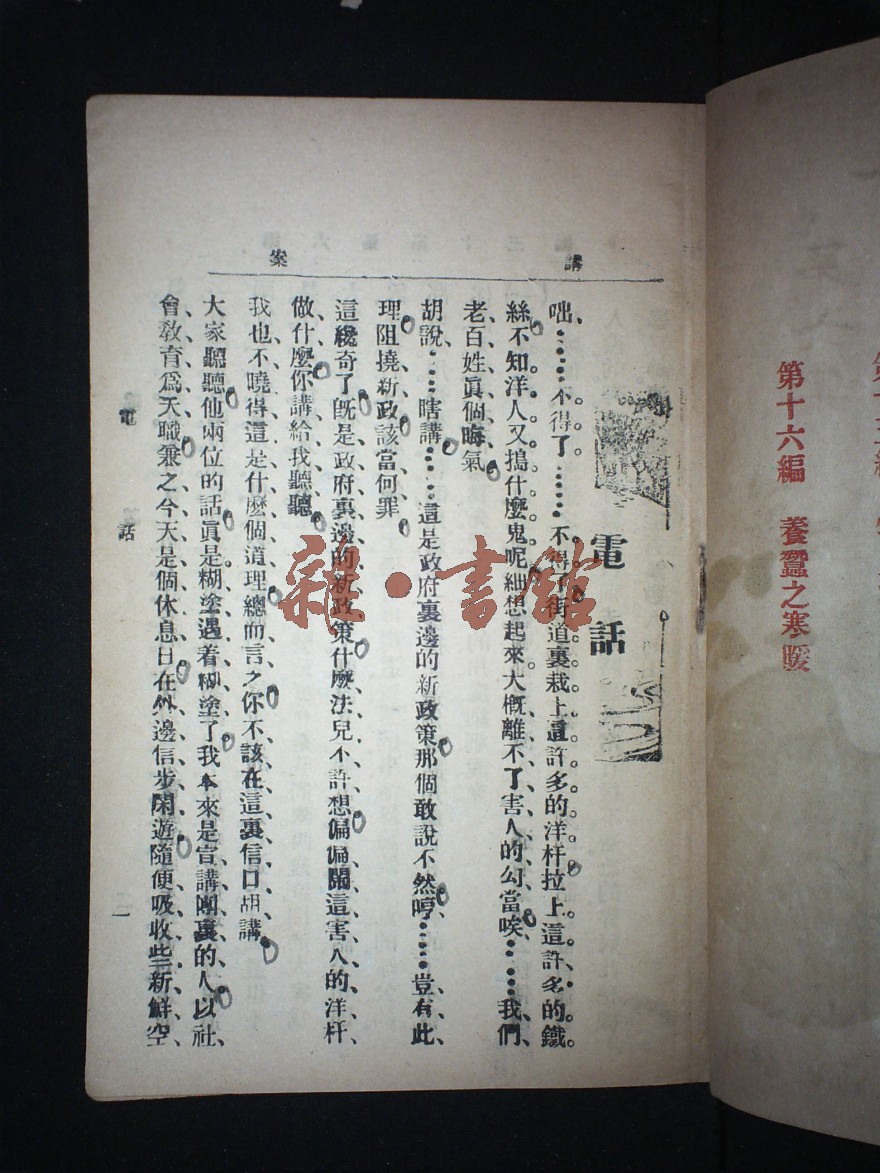 第十六編　養蠶之寒暖
講案
電話
咄……不得了……不得了街道裏栽上這許多的洋杆拉上這許多的鐵
絲不知洋人又搗什麼鬼呢細想起來大概離不了害人的勾當唉……我們
老百姓眞個晦氣
胡說……瞎講……這是政府裏邊的新政策那個敢說不然哼……豈有此
理阻撓新政該當何罪
這纔奇了旣是政府裏邊的新政策什麼法兒不許想偏偏鬧這害人的洋杆
做什麼你講給我聽聽
我也不曉得這是什麼個道理總而言之你不該在這裏信口胡講
大家聽聽他兩位的話眞是糊塗遇着糊塗了我本來是宣講團裏的人以社
會敎育爲天職兼之今天是個休息日在外邊信步閑遊隨便吸收些新鮮空
電話
一
雜·書館